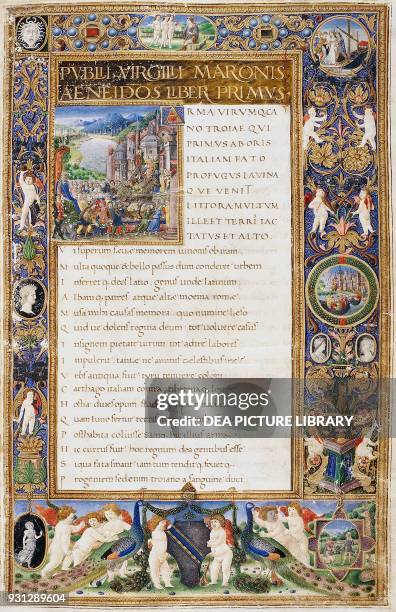 PVBILI VIRGILI MARONIS
AENEIDOS LIBER PRIMVS
RMA VIRVMQ CA
NO TROIAE QVI
PRIMVS AB ORIS
ITALIAM FATO
PROFVGVS LAVINA
QVE VENIT
LITTORA MVLTVM
ILLE ET TERRI IAC
TATVS ET ALTO.
superum saeuae memorem iunonis ob iram
Multa quoque & bello passus dum conderet urbem
Inferret q deos latio. genus unde latinum
Albani q patres. atque altae moenia romae
Musa mihi causas memora. quo numine laeso
Quid ue dolens regina deum tot uoluere casus
Insignem pietate uirum. tot adire labores
Impulerit. tantae ne animis caelestibus irae
Vrbs antiqua fuit tyrii tenuere coloni
Carthago italiam contra
Hostia diues opum
Quam iuno fertur
Posthabita coluisse samo. hic illius arma
Hic currus fuit hoc regnum dea gentibus esse
Si qua fata sinant iam tum tendit q fouet q
Progeniem sed enim troiano a sanguine duci
DEA PICTURE LIBRARY
gettyimages
931289604